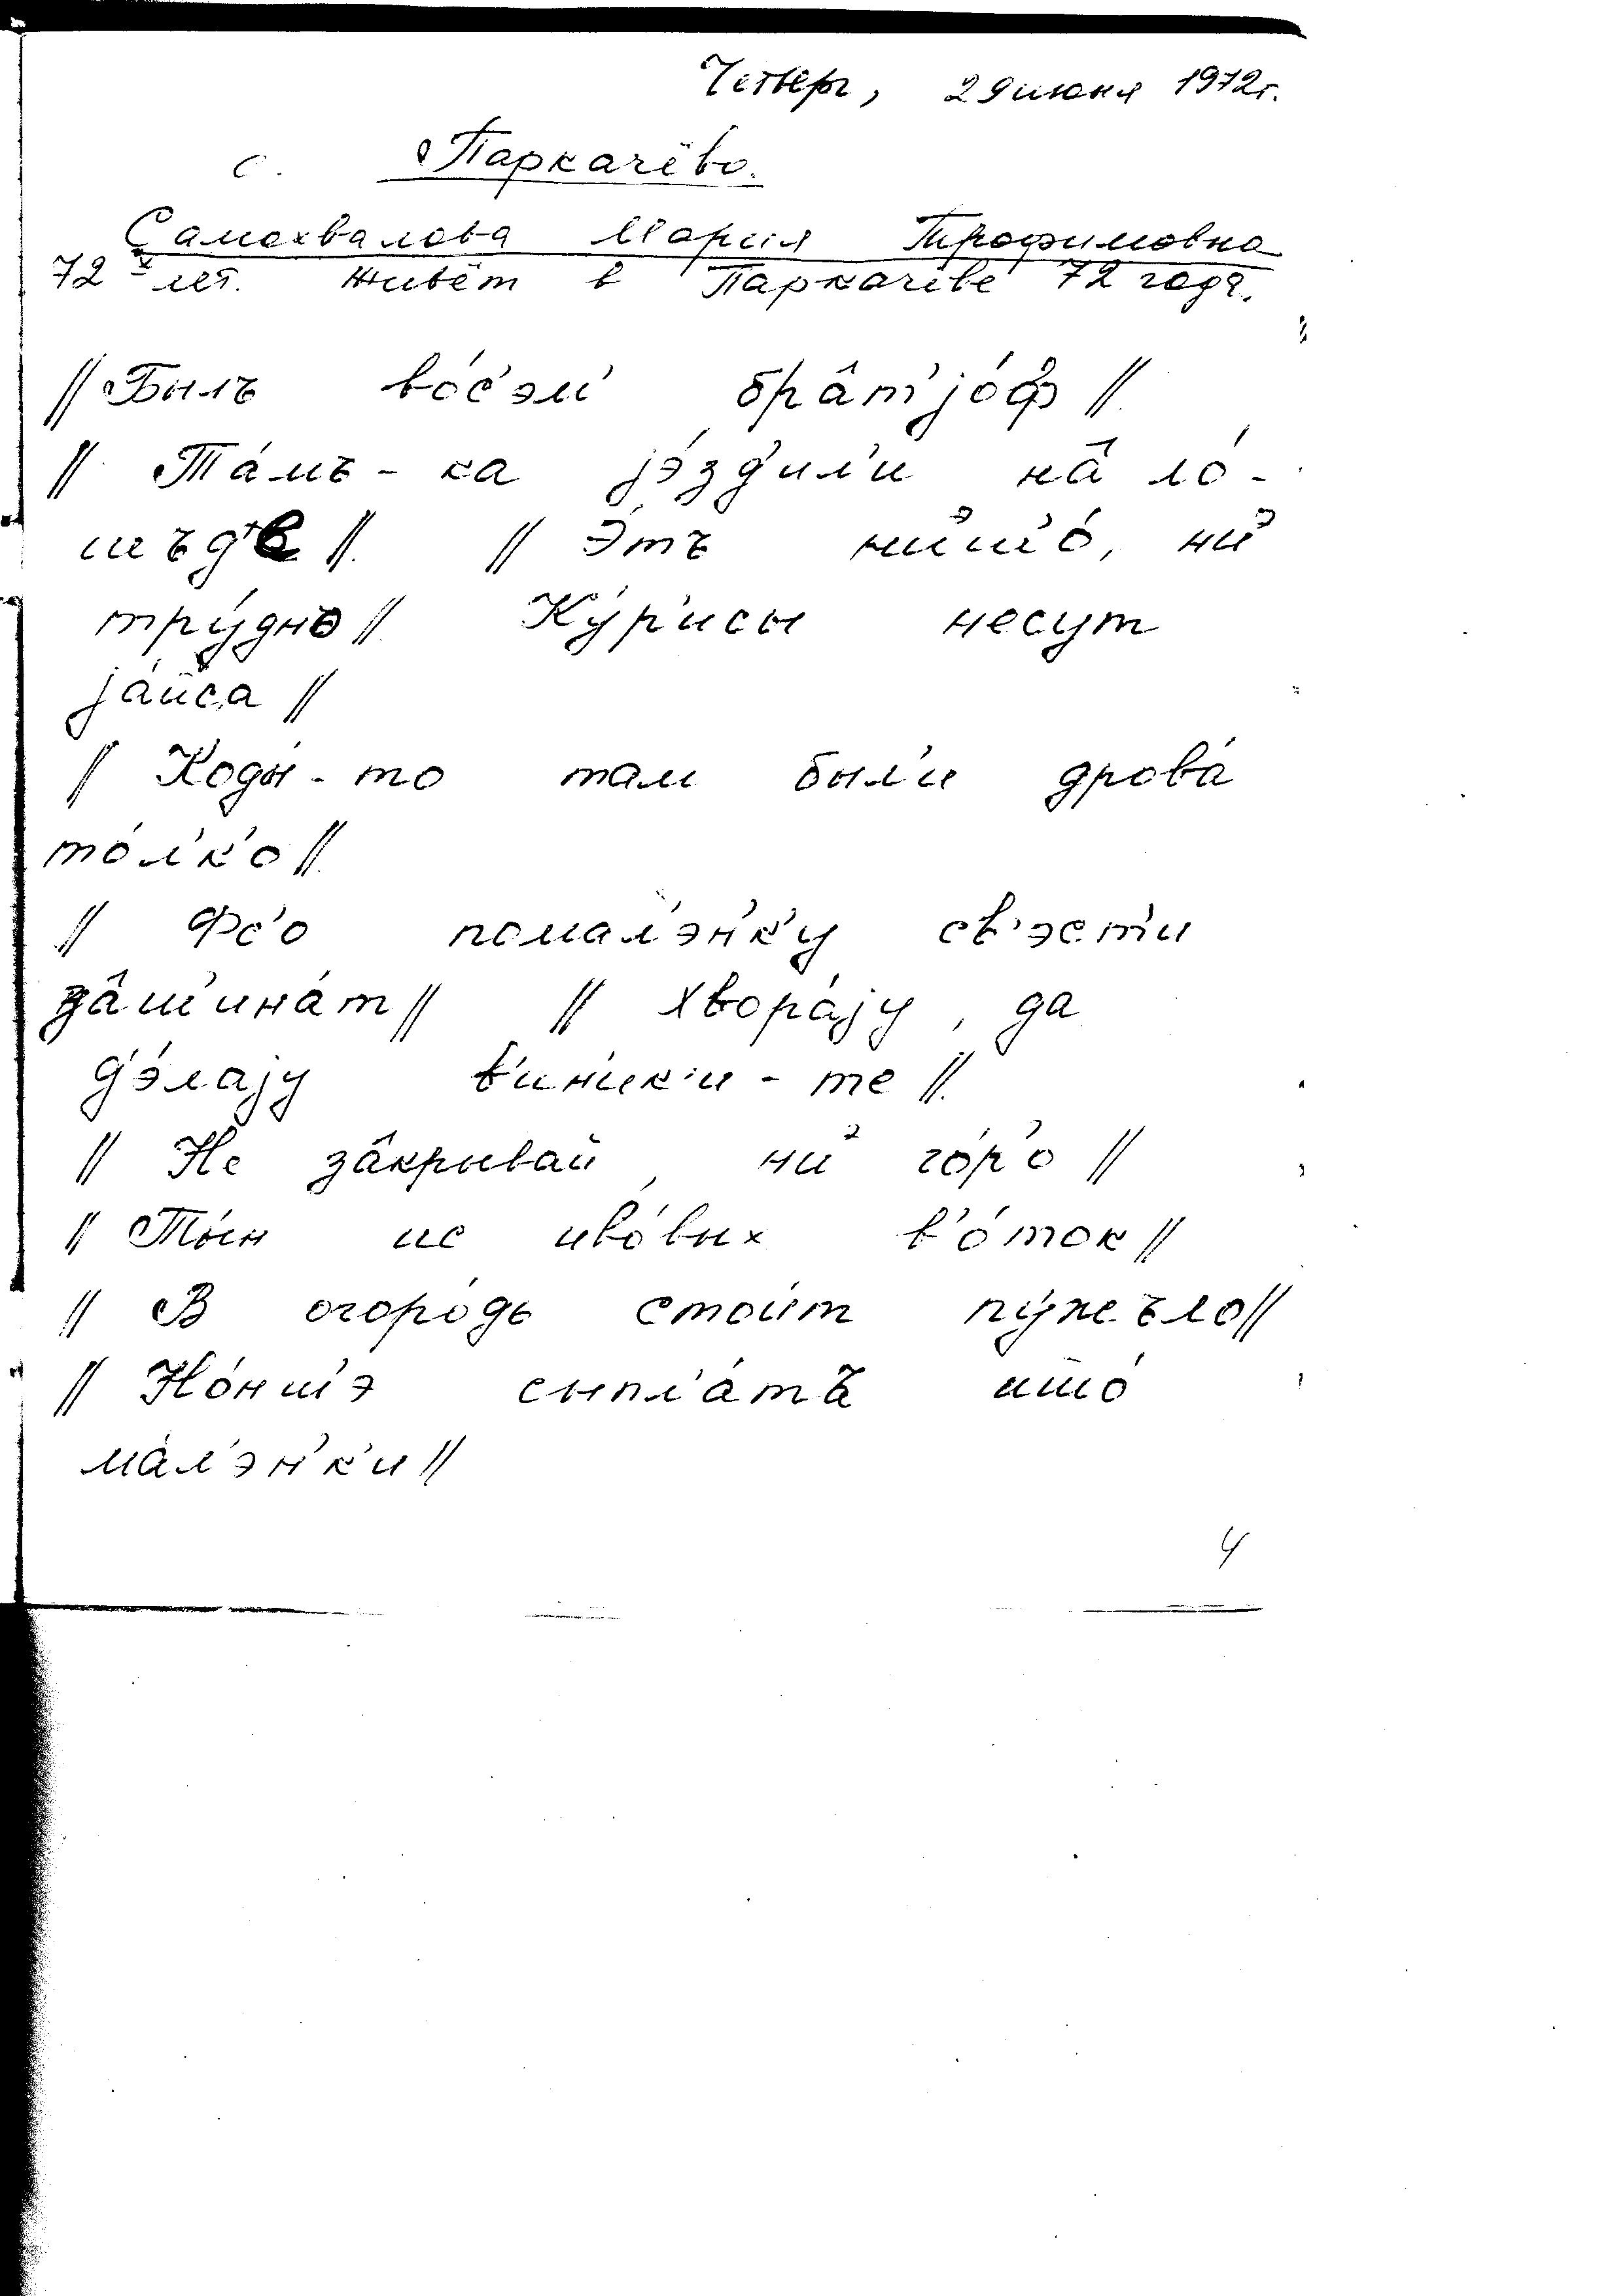 Четверг, 29 июня 1972г.
с. Паркачёво.
Самохвалова Мария Трофимовна
72 х лет. живёт в Паркачёве 72 года.
// Былъ во́с'эм' бра̂т'jо́ф //
// Та́мъ-ка jэ́зд'ил'и на̂ ло́-
шъд'е //. // Э́тъ ниэш'о́, ниэ
тру́дно // Ку́р'исы несут
jа́йса //
/ Коды́-то там был'и дрова́
то́л'к'о //.
// Фс'о помал'э́н'к'у св'эст'и
за̂ш'ина́т // // Хвора́jу, да
д'э́лаjу в'ин'ик'и-те //.
// Не за̂крывай, ниэ го́р'о //
// Ты́н ис иво́вых в'о́ток //
// В огоро́дь стои́т пу́жъло //
// Но́ниш'э сыпл'а́тъ ишо́
ма́л'эн'к'и //
4